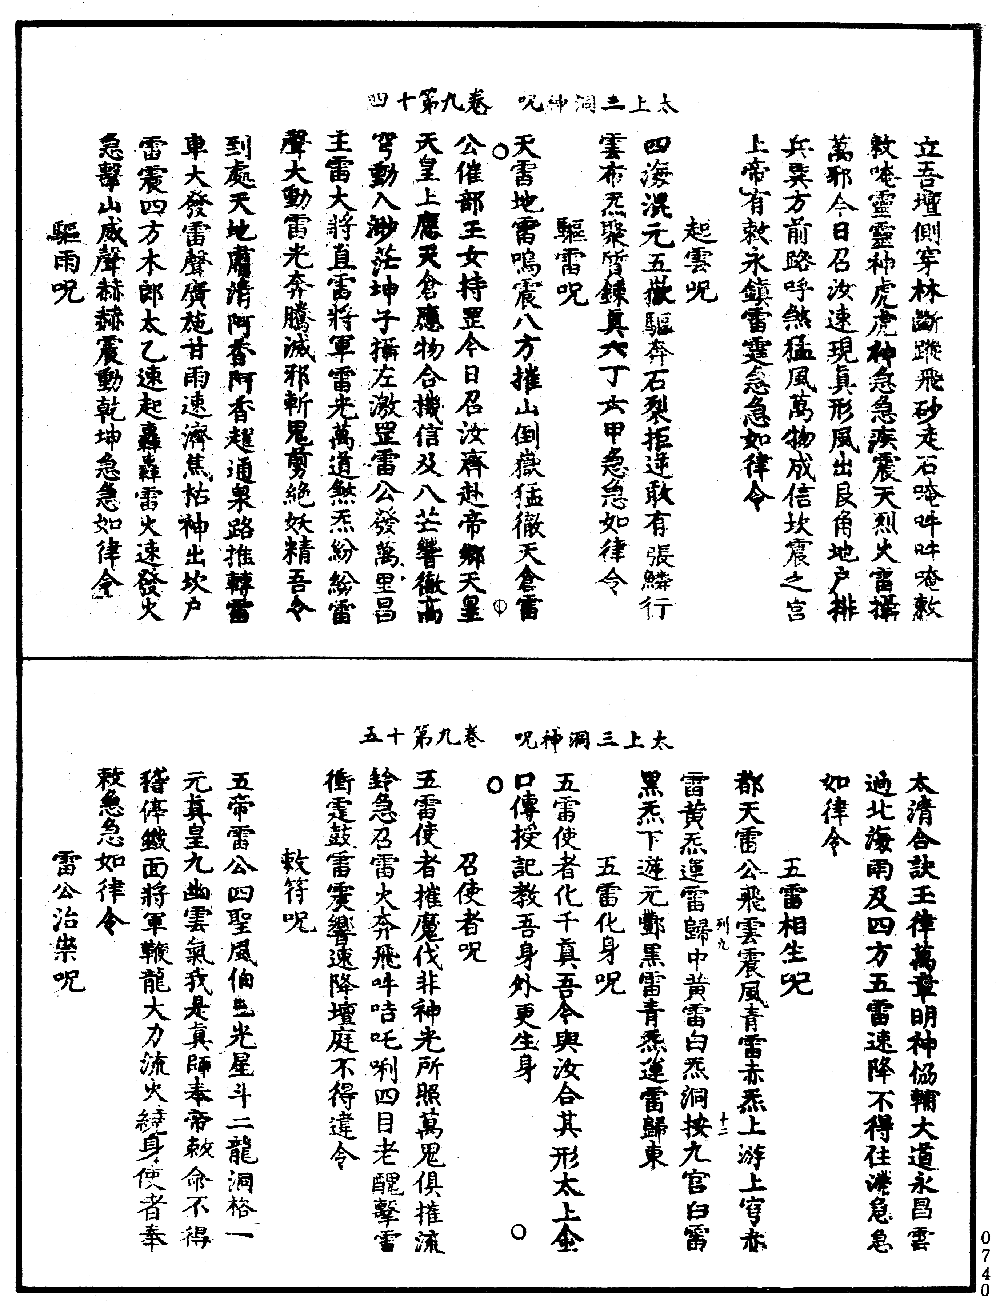 太上三洞神呪　卷九第十四
立吾壇側穿林斷蹤飛砂走石唵吽吽唵敕
敕唵靈靈神虎虎神急急疾震天烈火雷攝
萬邪今日召汝速現真形風出艮角地户排
兵巽方前路呼煞猛風萬物成信坎震之宫
上帝有敕永鎮雷霆急急如律令
起雲呪
四海混元五嶽驅奔石裂拒逆敢有張鱗行
雲布炁聚質鍊真六丁六甲急急如律令
驅雷呪
天雷地雷嗚震八方摧山倒嶽猛徹天倉雷
公催部玉女持罡今日召汝齊赴帝鄉天皇
天皇上應天倉應物合機信及八芒響徹高
穹動入渺茫坤子攝左激罡雷公發萬里昌
主雷大將直雷將軍雷光萬道煞炁紛紛雷
聲大動雷光奔騰滅邪斬鬼剪絶妖精吾令
到處天地肅清阿香阿香超通泉路推轉雷
車大發雷聲廣施甘雨速濟焦枯神出坎户
雷震四方木郎太乙速起轟轟雷火速發火
急擊山威聲赫赫震動乾坤急急如律令
驅雨呪
太上三洞神呪　卷九第十五
太清合訣玉律萬章明神協輔大道永昌雲
過北海雨及四方五雷速降不得住滯急急
如律令
五雷相生呪
都天雷公飛雲震風青雷赤炁上游上穹赤
雷黄炁運雷歸中黄雷白炁洞按九宫白雷
黑炁下遊元酆黑雷青炁運雷歸東
五雷化身呪
五雷使者化千真吾今與汝合其形太上金
口傳授記教吾身外更生身
召使者呪
五雷使者摧魔伐非神光所照萬鬼俱摧流
鈴急召雷火奔飛吽咭吒唎四目老醜擊雷
衝霆鼓雷震響速降壇庭不得違令
敕符呪
五帝雷公四聖風伯三光星斗二龍洞格一
元真皇九幽雲氣我是真師奉帝敕命不得
稽停鐵面將軍鞭龍大力流火繞身使者奉
敕急急如律令
雷公治祟呪
0740